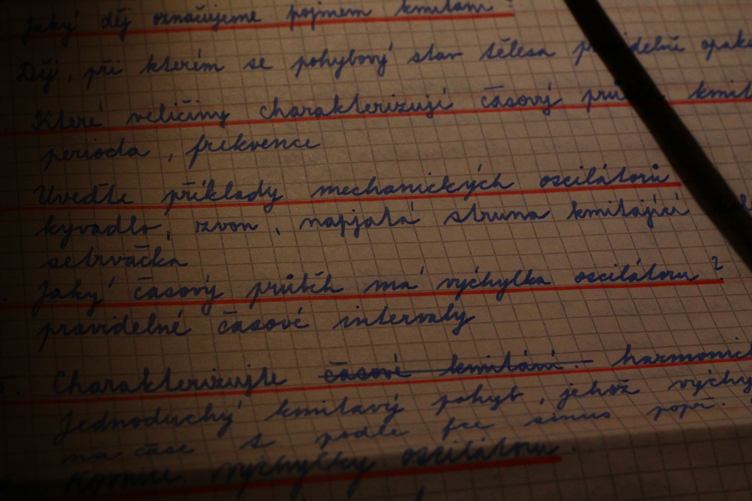 Jaký děj označujeme pojmem kmitání?
Děj, při kterém se pohybový stav tělesa pravidelně opak
Které veličiny charakterizují časový průběh kmit
perioda, frekvence
Uveďte příklady mechanických oscilátorů
kyvadlo, zvon, napjatá struna kmitající
setrvačka
Jaký časový průběh má výchylka oscilátoru?
pravidelné časové intervaly
Charakterizujte časové kmitání harmonick
Jednoduchý kmitavý pohyb, jehož výchy
na čase t podle fce sinus popř.
výchylky oscilátoru.